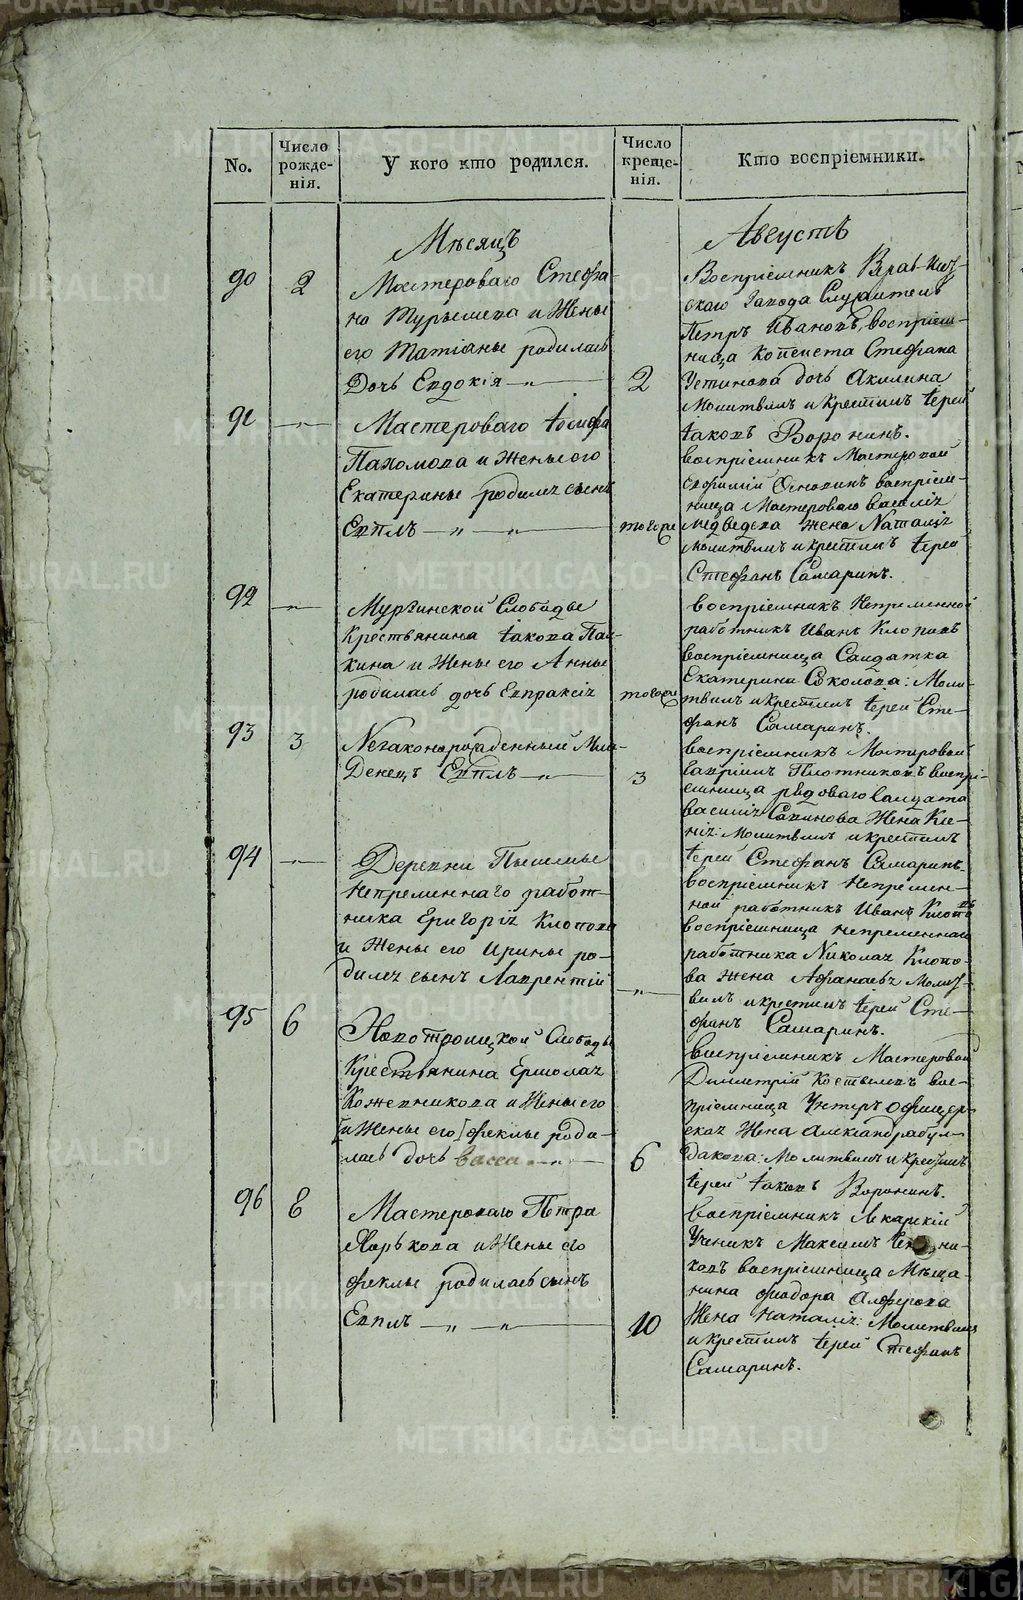 No.
Число рожде-нія.
У кого кто родился.
Число креще-нія.
Кто воспріемники.
Мѣсяцъ
Августъ
90
2
Мастероваго Стефа-
на Турышева и Жены
его Татіаны родилась
Дочь Евдокія — „ —
2
Воспріемникъ
скаго Завода Служитель
Петръ Ивановъ, воспріем-
ница Копеиста Стефана
Устинова дочь Акилина
Молитвилъ и Крестилъ Іерей
Іаковъ Воронинъ.
91
— „ —
Мастероваго Іосифа
Пахомова и Жены его
Екатерины родился сынъ
Евплъ — „ — „ —
тогоже
воспріемникъ Мастеровой
воспріем-
ница Мастероваго василія
Медведева жена Наталія
молитвилъ и крестилъ Іерей
Стефанъ Самаринъ.
92
— „ —
Мурзинской Слободы
Крестьянина Іакова Пай-
кина и Жены его Анны
родилась дочь Евпраксія
тогоже
воспріемникъ Непременной
работникъ Иванъ Клоповъ
воспріемница Салдатка
Екатерина Соколова: Моли-
твилъ и крестилъ Іерей Сте-
фанъ Самаринъ.
93
3
Незаконорожденный Мла-
Денецъ Евплъ — „ —
3
воспріемникъ Мастеровой
Гавріилъ Плотниковъ воспрі-
емница рядоваго Салдата
василія Савинова Жена Ксе-
нія: Молитвилъ и крестилъ
Іерей Стефанъ Самаринъ.
94
— „ —
Деревни Пышмы
Непременнаго работ-
ника Григорія Клопова
и Жены его Ирины ро-
дился сынъ Лаврентій
— „ —
воспріемникъ Непремен-
ной работникъ Иванъ Клоповъ
воспріемница непременнаго
работника Николая Клопо-
ва Жена Афанасья Молит-
вилъ и крестилъ Іерей Сте-
фанъ Самаринъ.
95
6
Новотроицкой Слободы
Крестьянина Ермолая
Кожевникова и Жены его
[и Жены его] феклы роди-
лась дочь васса — „ —
6
воспріемникъ Мастеровой
Димитрій вос-
пріемница Унтеръ офицер-
ская Жена Александра Бул-
дакова: Молитвилъ и Крестилъ
Іерей Іаковъ Воронинъ.
96
8
Мастероваго Петра
Харькова и Жены его
феклы родилась сынъ
Евплъ — „ — „ —
10
воспріемникъ Лекарскій
Ученикъ Максимъ
ковъ воспріемница Мѣща-
нина фиодора Алферова
Жена Наталія: Молитвилъ
и крестилъ Іерей Стефанъ
Самаринъ.
METRIKI.GASO-URAL.RU